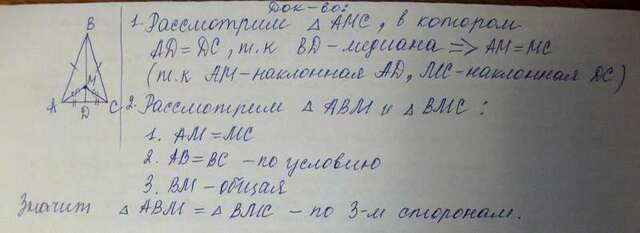 Док-во:
1. Рассмотрим △ AMC, в котором
AD = DC, т.к BD - медиана => AM = MC
(т.к AM - наклонная AD, MC - наклонная DC)
2. Рассмотрим △ ABM и △ BMC :
1. AM = MC
2. AB = BC - по условию
3. BM - общая
Значит △ ABM = △ BMC - по 3-м сторонам.
B
M
A
D
C